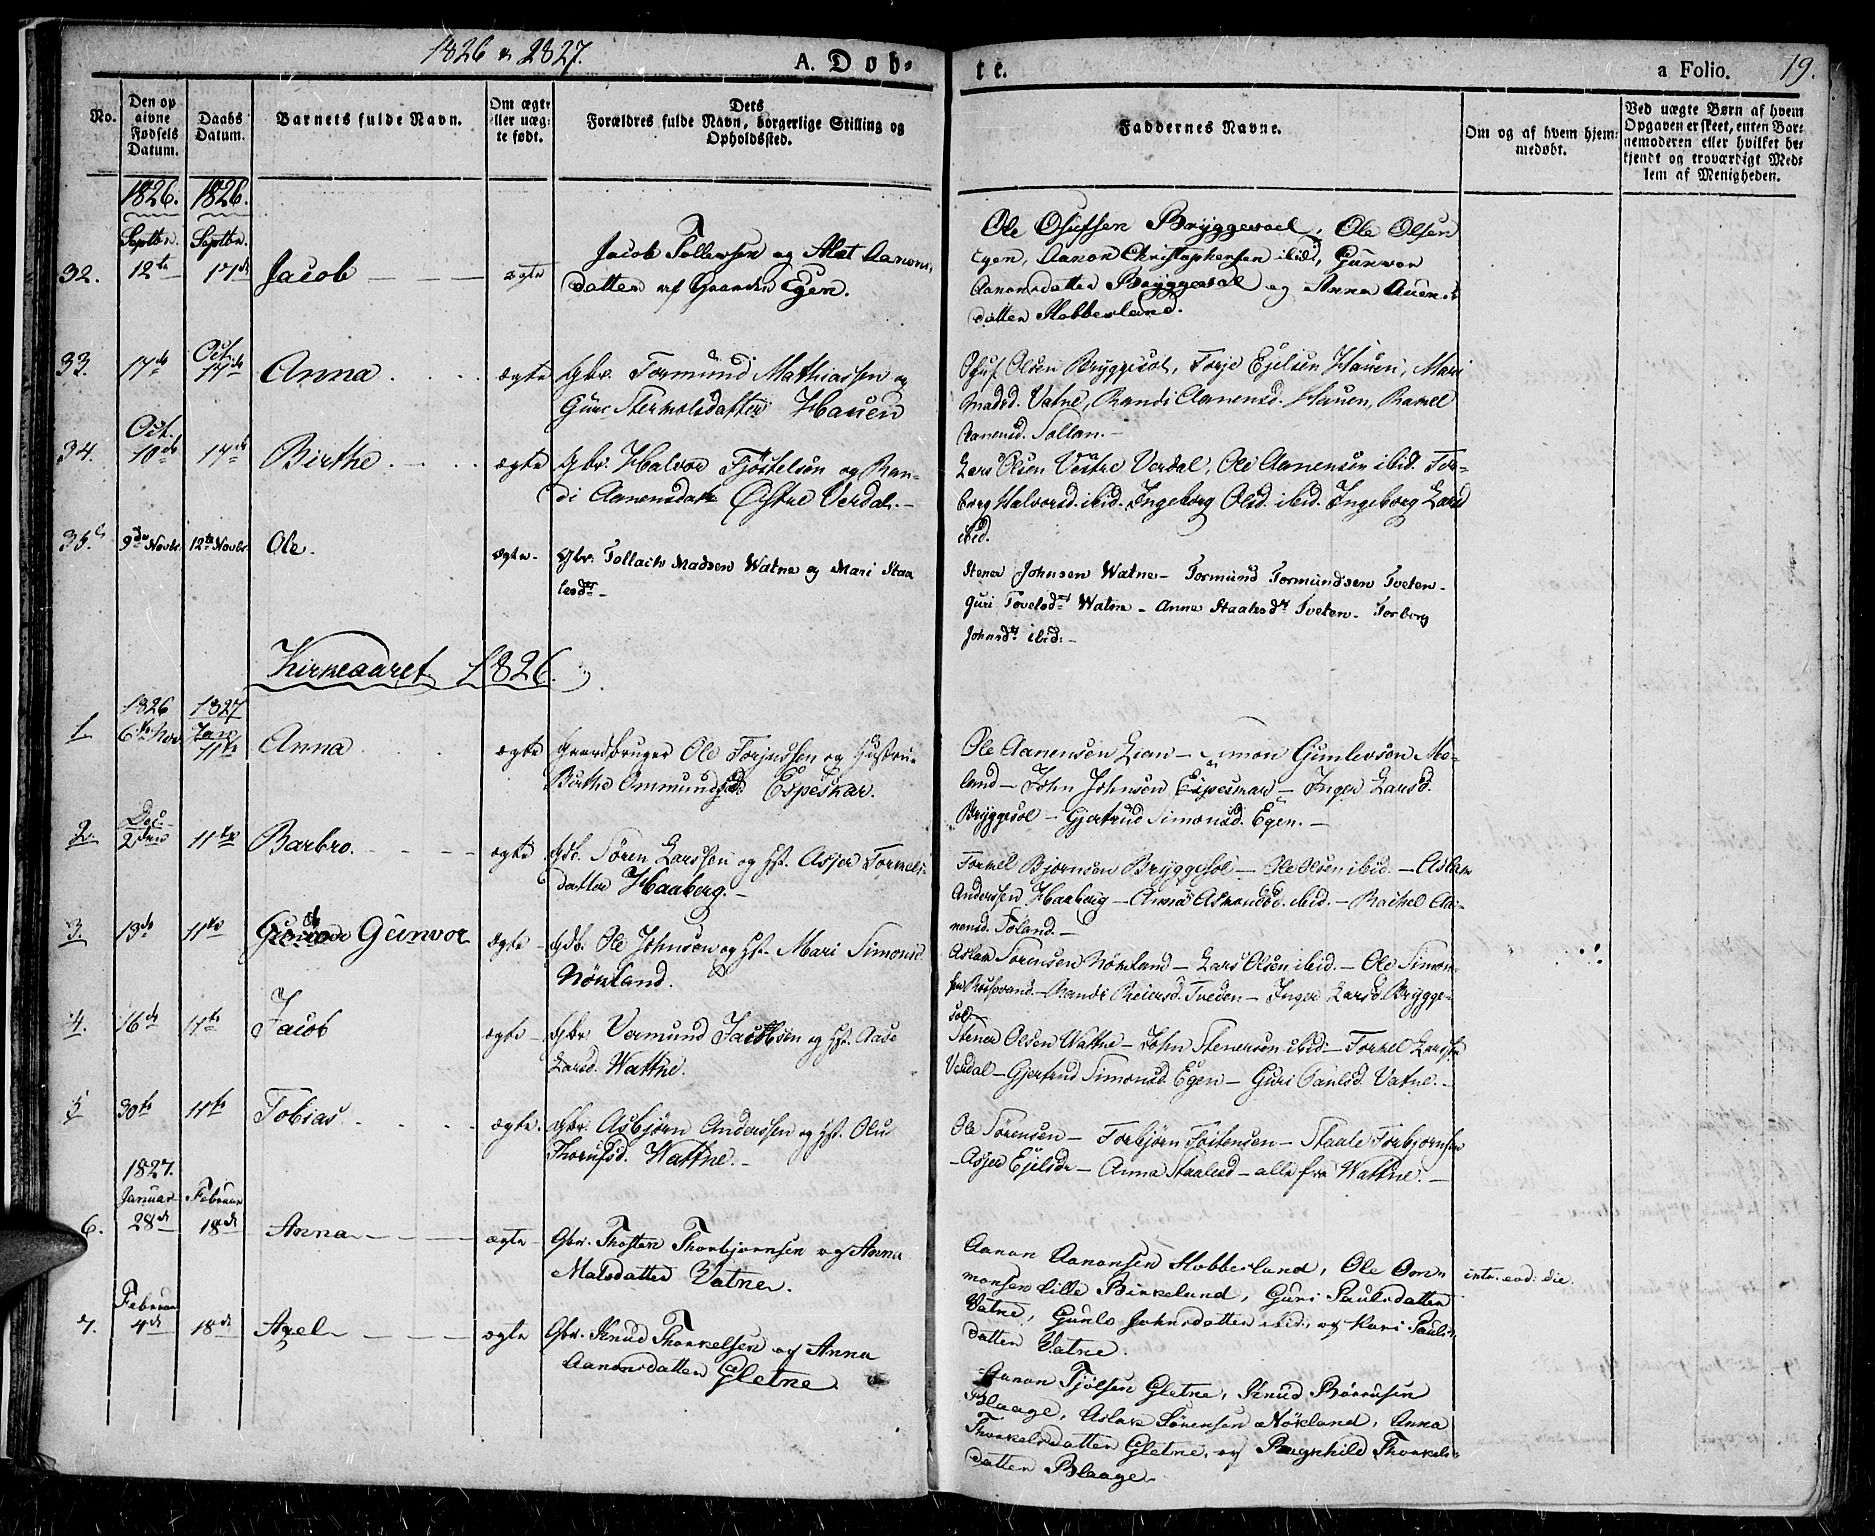 1826 & 1827.
A. Døb-
te.
a Folio. 19.
No.
Den op
givne
Fødsels
Datum.
Daabs
Datum.
Barnets fulde Navn.
Om ægte
eller uæg-
te født.
Dets
Forældres fulde Navn, borgerlige Stilling og
Opholdssted.
Faddernes Navne.
Om og af hvem hjem-
medøbt.
Ved uægte Børn af hvem
Opgaven er skeet, enten Bar-
nemoderen eller hvilket be-
kjendt og troværdigt Med-
lem af Menigheden.
1826. 1826.
Septbr. Septbr.
32. 12te 17de Jacob ægte
Jacob Tollevsen og Alet Aanons
datter af Gaarden Egen.
Ole Osufsen Bryggesael, Ole Olsen
Egen, Aanon Christophersen ibid, Gunvor
Aanonsdatter Bryggesøl og Anna Auens
datter Stobberland.
Oct.
33. 17de 17de Anna ægte
Gbr. Tormund Mathiassen og
Guro Sterkolsdatter Hauen
Osuf Olsen Bryggesøl, Torje Ejelsen Hauen, Mari
Madsd. Vatne, Randi Aanensd. Hauen, Rakel
Aanensd. Tollan.
Oct.
34. 10de 17de Birthe ægte
Gbr. Halvor Fjøstelsøn og Ran-
di Aanensdatr Østre Verdal.
Lars Olsen Vestre Verdal, Ole Aanensen ibid. Tor-
borg Halvorsd. ibid. Ingeborg Olsd. ibid. Ingeborg Larsd
ibid.
35. 9de Novbr. 12te Novbr. Ole. ægte
Gbr. Tollach Madsen Watne og Mari Staa
lesdtr
Stener Johnsen Watne - Tormund Tormundsen Tveten -
Guri Tovelsdtr Watne - Anne Staalesdr Tveten - Torborg
Johnsdr ibid. -
Kirkeaaret 1826.
1826 1827
1 6te Nov Janr 11te Anna ægte
Gaardbruger Ole Torjussen og Hustru
Birthe Ommundsd. Espeskar.
Ole Aanensen Lian - Simon Gunlevsen Me-
land - John Johnsen Espeskar - Inger Larsd.
Bryggesøl - Gjertrud Simonsd. Egen. -
Dec.
2. 2den 11te Barbro. ægte
Gdb. Søren Larssen og Hst. Asjer Torkels-
datter Haaberg.
Torkel Bjørnsen Bryggesøl - Ole Olsen ibid. - Aslak
Anderssen Haaberg - Anna Asmondsd. ibid. - Rachel Aa-
nensd. Føland. -
3. 13de 11te Gunvor ægte
Gdb. Ole Johnsen og Hst. Mari Simonsd
Nökland.
Aslak Sørensen Nökland - Lars Olsen ibid. - Ole Simon-
sen - Randi Reiersd. Tveden - Inger Larsd. Brygge-
søl.
4. 16de 11te Jacob ægte
Gbr Vermund Jacobsen og Hst. Aase
Larsd. Wattne.
Stener Olsen Wattne - John Stenersen ibid - Torkel Larssen
Verdal - Gjertrud Simonsd. Egen - Guri Paulsd. Vatne. -
5 30te 11te Tobias ægte
Gbr. Asbjørn Anderssen og Hst. Olu
Thorufsd. Wattne. -
Ole Sörensen - Torbjørn Töstensen - Staale Torbjørnsen
- Asjer Ejelsdr - Anna Staalesd - alle fra Wattne. -
1827.
Januar Februar
6. 28de 18de Anna ægte
Gbr. Thosten Thorbjørnsen og Anna
Matsdatter Vatne.
Aanon Aanonsen Stobberland, Ole Om-
monsen Lille Birkeland, Guri Paulsdatter
Vatne, Gunlo Johnsdatter ibid, og Kari Pauls-
datter Vatne.
intr. eod. die
Februar
7. 4de 18de Axel ægte
Gbr. Knud Thorkelsen og Anna
Aanonsdatter Gletne.
Aanon Tjølsen Gletne, Knud Børresen
Blaage, Aslak Sørensen Nökland, Anna
Thorkelsdatter Gletne, og Ragnhild Thorkels-
datter Blaage.